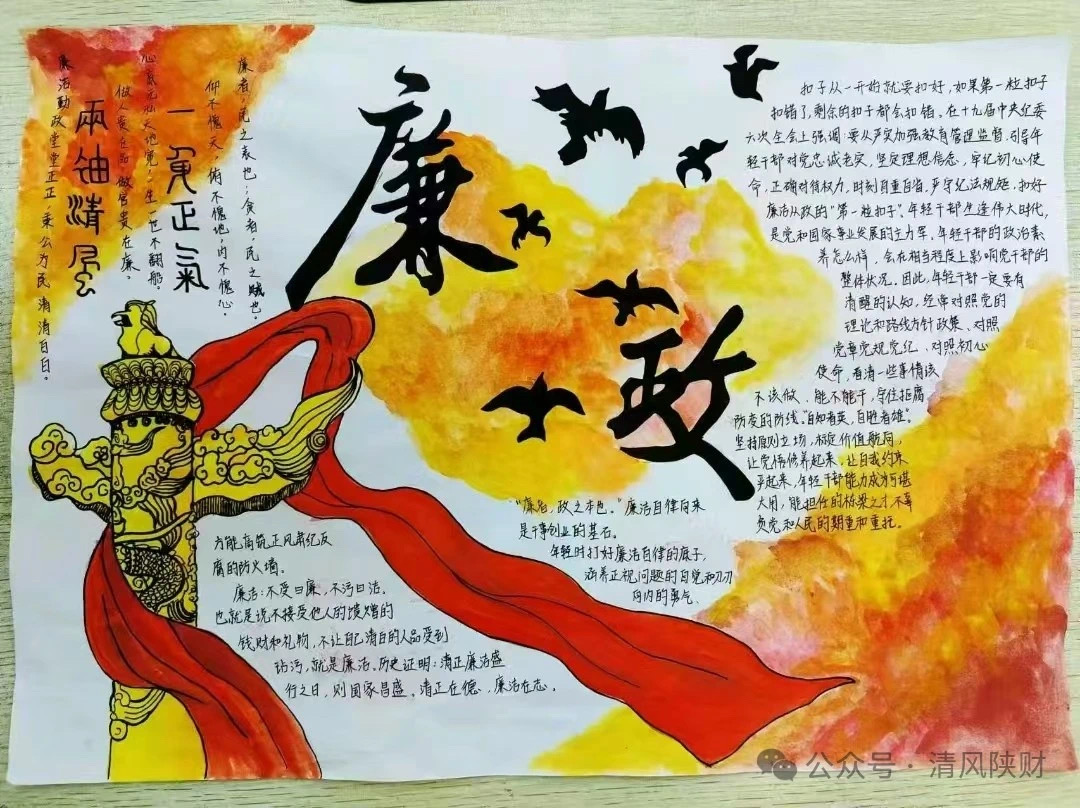 廉者,民之表也;贪者,民之贼也。
仰不愧天,俯不愧地,内不愧心。
一身正氣
心底无私天地宽,一生一世不翻船。
做人贵在品,做官贵在廉。
兩袖清風
廉洁勤政堂堂正正,秉公为民清清白白。
廉
政
扣子从一开始就要扣好,如果第一粒扣子
扣错了,剩余的扣子都会扣错。在十九届中央纪委
六次全会上强调:要从严实加强教育管理监督.引导年
轻干部对党忠诚老实,坚定理想信念,牢记初心使
命,正确对待权力,时刻自重自省,严守纪法规矩,扣好
廉洁从政的“第一粒扣子”。年轻干部生逢伟大时代,
是党和国家事业发展的主力军。年轻干部的政治素
养怎么样,会在相当程度上影响党干部的
整体状况。因此,年轻干部一定要有
清醒的认知,经常对照党的
理论和路线方针政策、对照
党章党规党纪、对照初心
使命,看清一些事情该
不该做、能不能干,守住拒腐
防变的防线。“自知者英,自胜者雄”。
坚持原则立场,标定价值航向,
让党悟修养起来,让自我约束
严起来,年轻干部能力成为可堪
大用,能担任的栋梁之才,不辜
负党和人民的期望和重托。
“廉洁,政之本也。”廉洁自律向来
是干事创业的基石。
年轻时打好廉洁自律的底子,
涵养正视问题的自觉和刀刃
向内的勇气
方能高筑正风肃纪反
腐的防火墙。
廉洁:不受曰廉,不污曰洁。
也就是说不接受他人的馈赠的
钱财和礼物,不让自己清白的人品受到
玷污,就是廉洁。历史证明:清正廉洁盛
行之日,则国家昌盛。清正在德、廉洁在志。
公众号·清风陕财